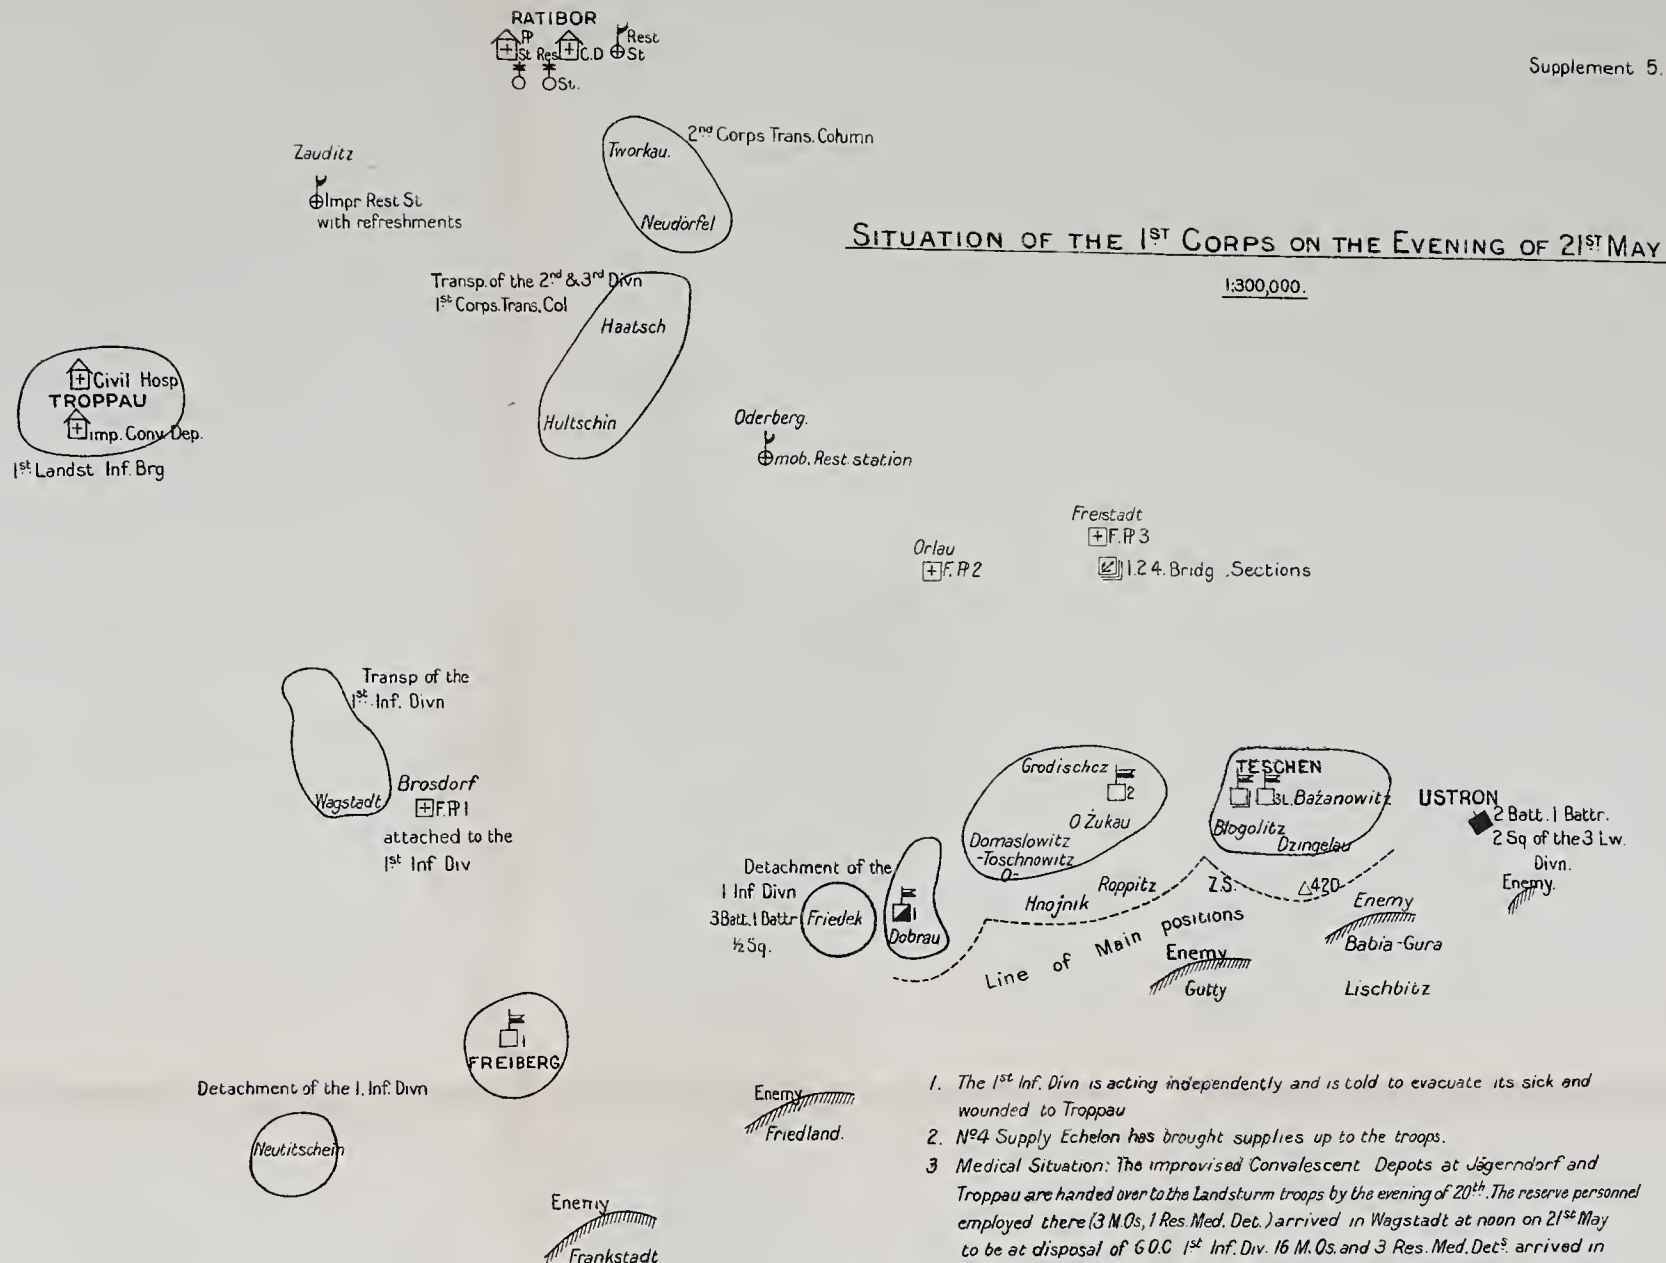 RATIBOR
St Res C.D Rest
St
St.
Supplement 5.
2nd Corps Trans. Column
Tworkau.
Neudörfel
Zauditz
Impr Rest St
with refreshments
SITUATION OF THE 1ST CORPS ON THE EVENING OF 21ST MAY
1:300,000.
Transp. of the 2nd & 3rd Divn
1st Corps. Trans. Col
Haatsch
Hultschin
Civil Hosp
TROPPAU
imp. Conv. Dep.
1st Landst Inf. Brg
Oderberg.
mob. Rest. station
Freistadt
F.P 3
1.2 4. Bridg. Sections
Orlau
F.P 2
Transp of the
1st Inf. Divn
Wagstadt
Brosdorf
F.P 1
attached to the
1st Inf Div
Grodischcz
2
O Żukau
Domaslowitz
-Toschnowitz
O-
TESCHEN
1 3L. Bażanowitz
Blogolitz
Dzingelau
USTRON
2 Batt. 1 Battr.
2 Sq of the 3 Lw.
Divn.
Enemy.
Detachment of the
1 Inf Divn
3 Batt. 1 Battr
½ Sq.
Friedek
1
Dobrau
Hnojnik
Roppitz
Z.S.
△420
Line of Main positions
Enemy
Gutty
Enemy
Babia-Gura
Lischbitz
1
FREIBERG
Detachment of the 1. Inf. Divn
Neutitschein
Enemy
Friedland.
Enemy
Frankstadt
1. The 1st Inf. Divn is acting independently and is told to evacuate its sick and
wounded to Troppau
2. No4 Supply Echelon has brought supplies up to the troops.
3 Medical Situation: The improvised Convalescent Depots at Jägerndorf and
Troppau are handed over to the Landsturm troops by the evening of 20th. The reserve personnel
employed there (3 M.Os, 1 Res. Med. Det.) arrived in Wagstadt at noon on 21st May
to be at disposal of G.O.C 1st Inf. Div. 16 M.Os. and 3 Res. Med. Dets. arrived in